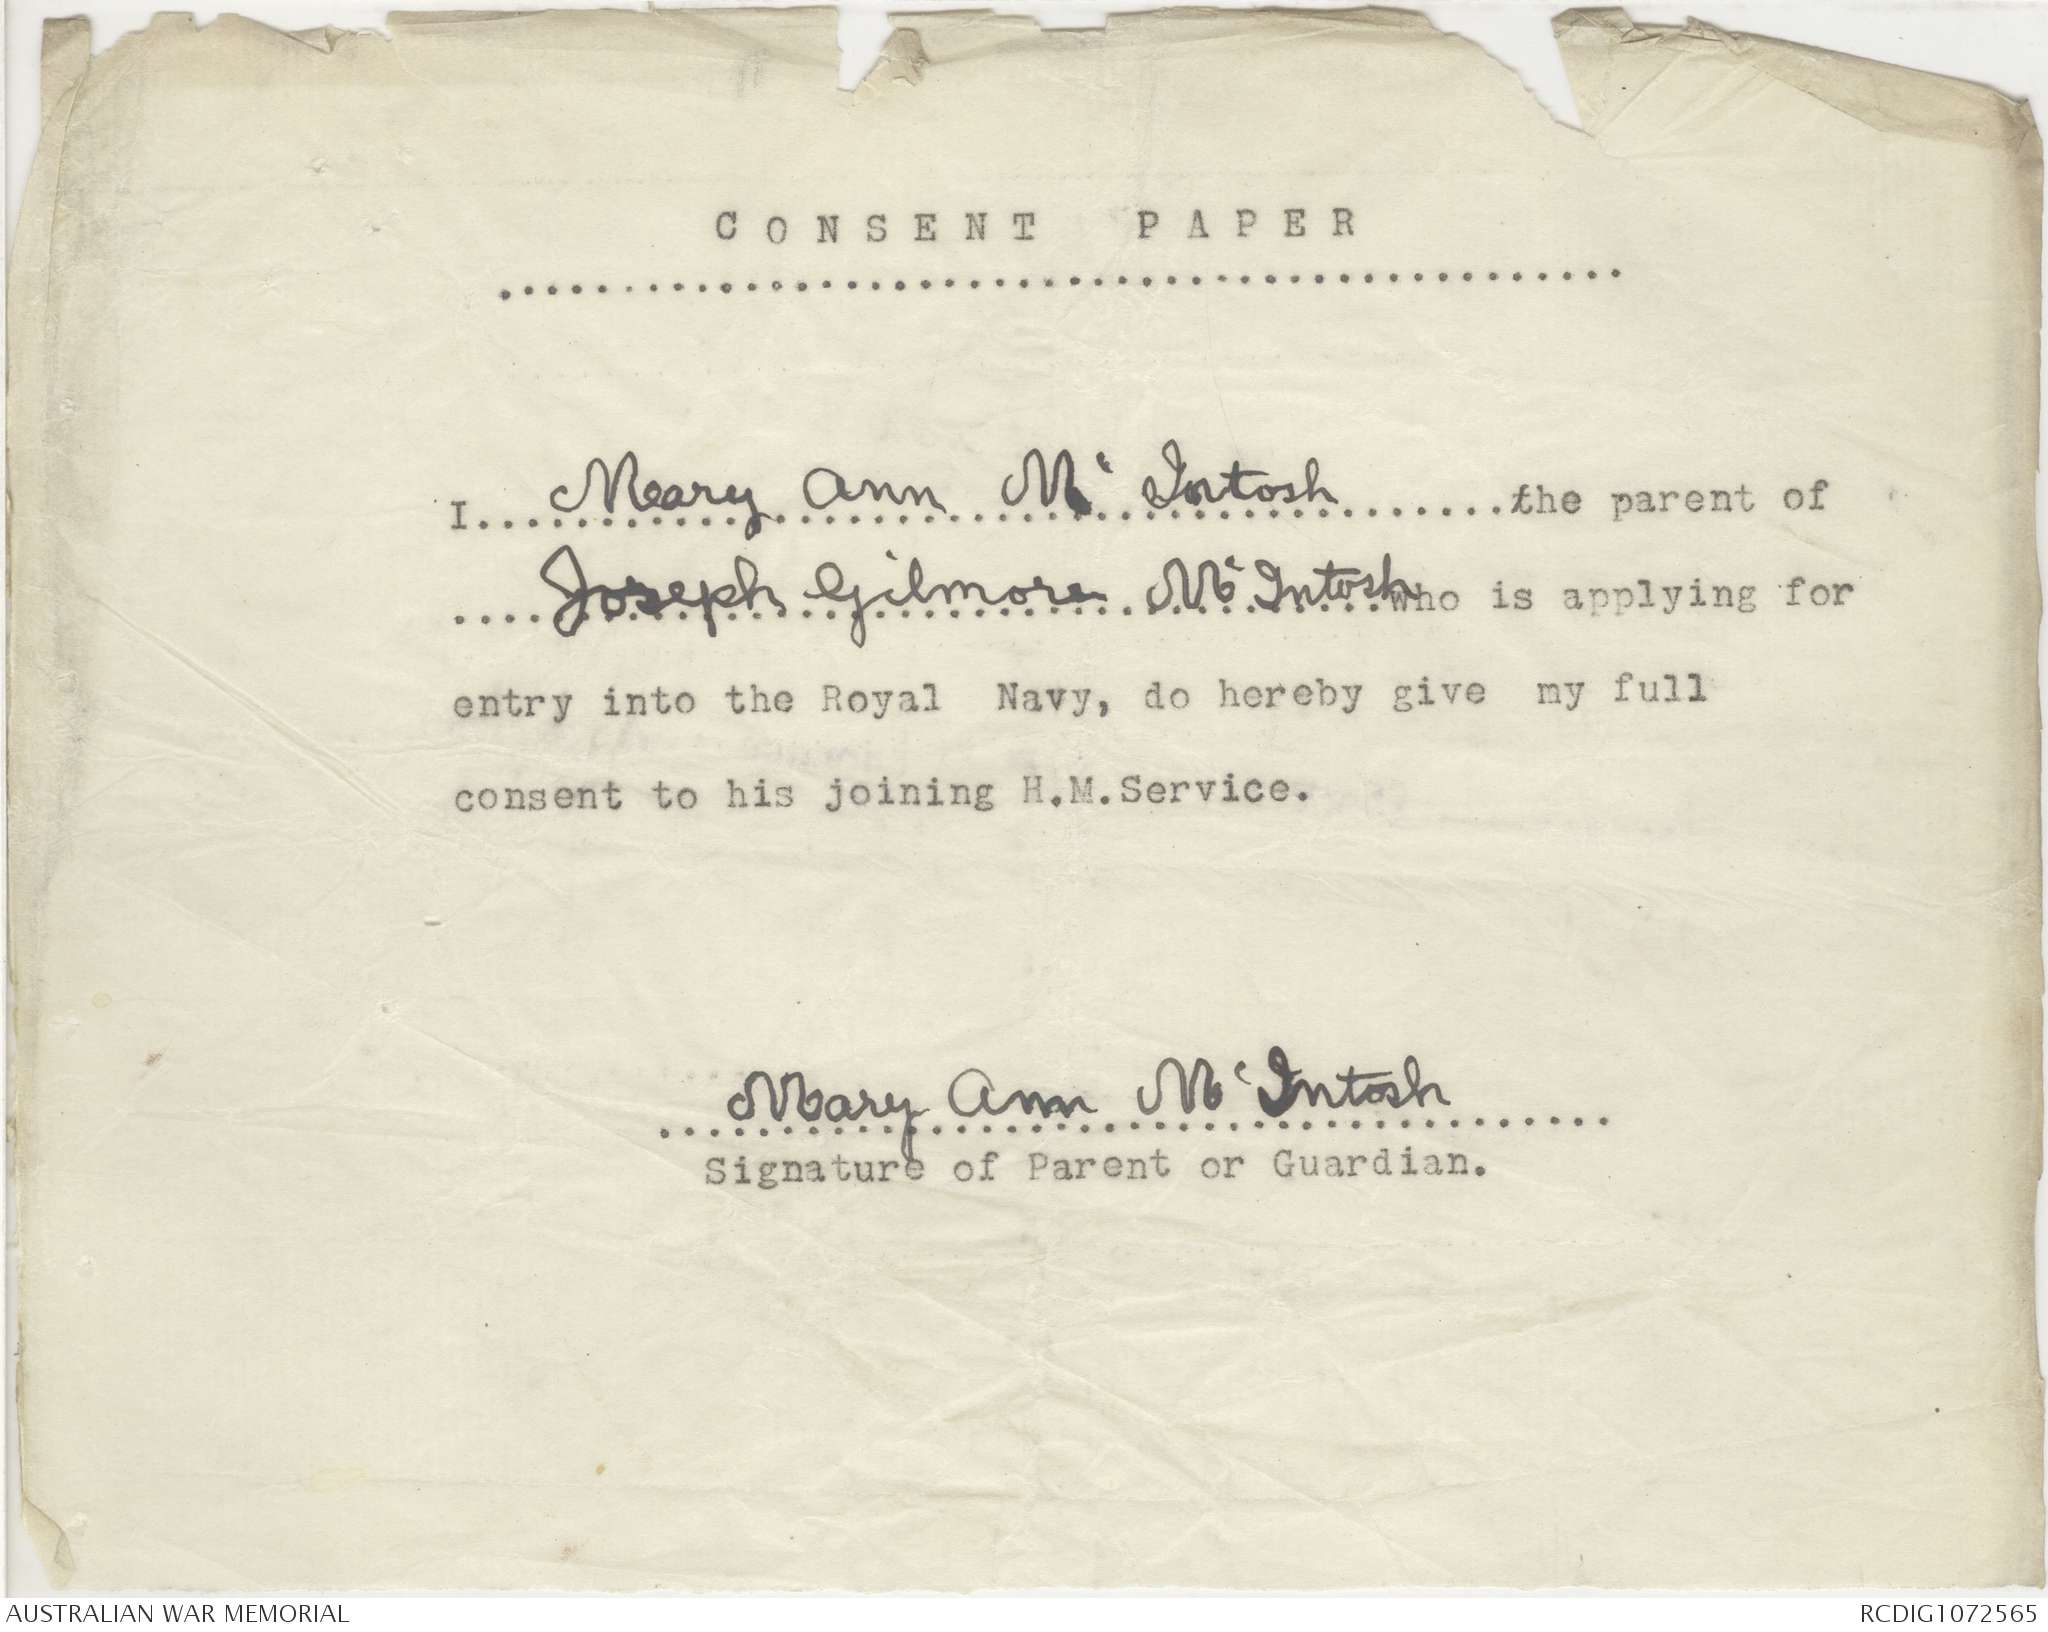 CONSENT PAPER
..............................................
I...Mary Ann Mc Intosh.......the parent of
....Joseph Gilmore McIntosh who is applying for
entry into the Royal Navy, do hereby give my full
consent to his joining H.M.Service.
Mary Ann McIntosh
.......................................
Signature of Parent or Guardian.
AUSTRALIAN WAR MEMORIAL
RCDIG1072565